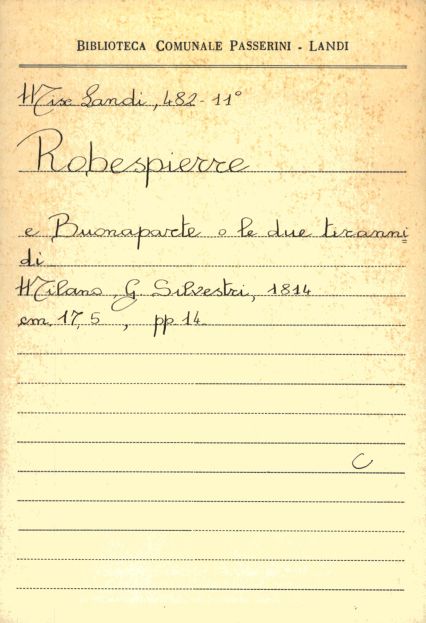 BIBLIOTECA COMUNALE PASSERINI - LANDI
Misc Landi, 482-11°
Robespierre
e Buonaparte o le due tiranni=
di
Milano G. Silvestri, 1814
cm. 17,5 , pp. 14
C